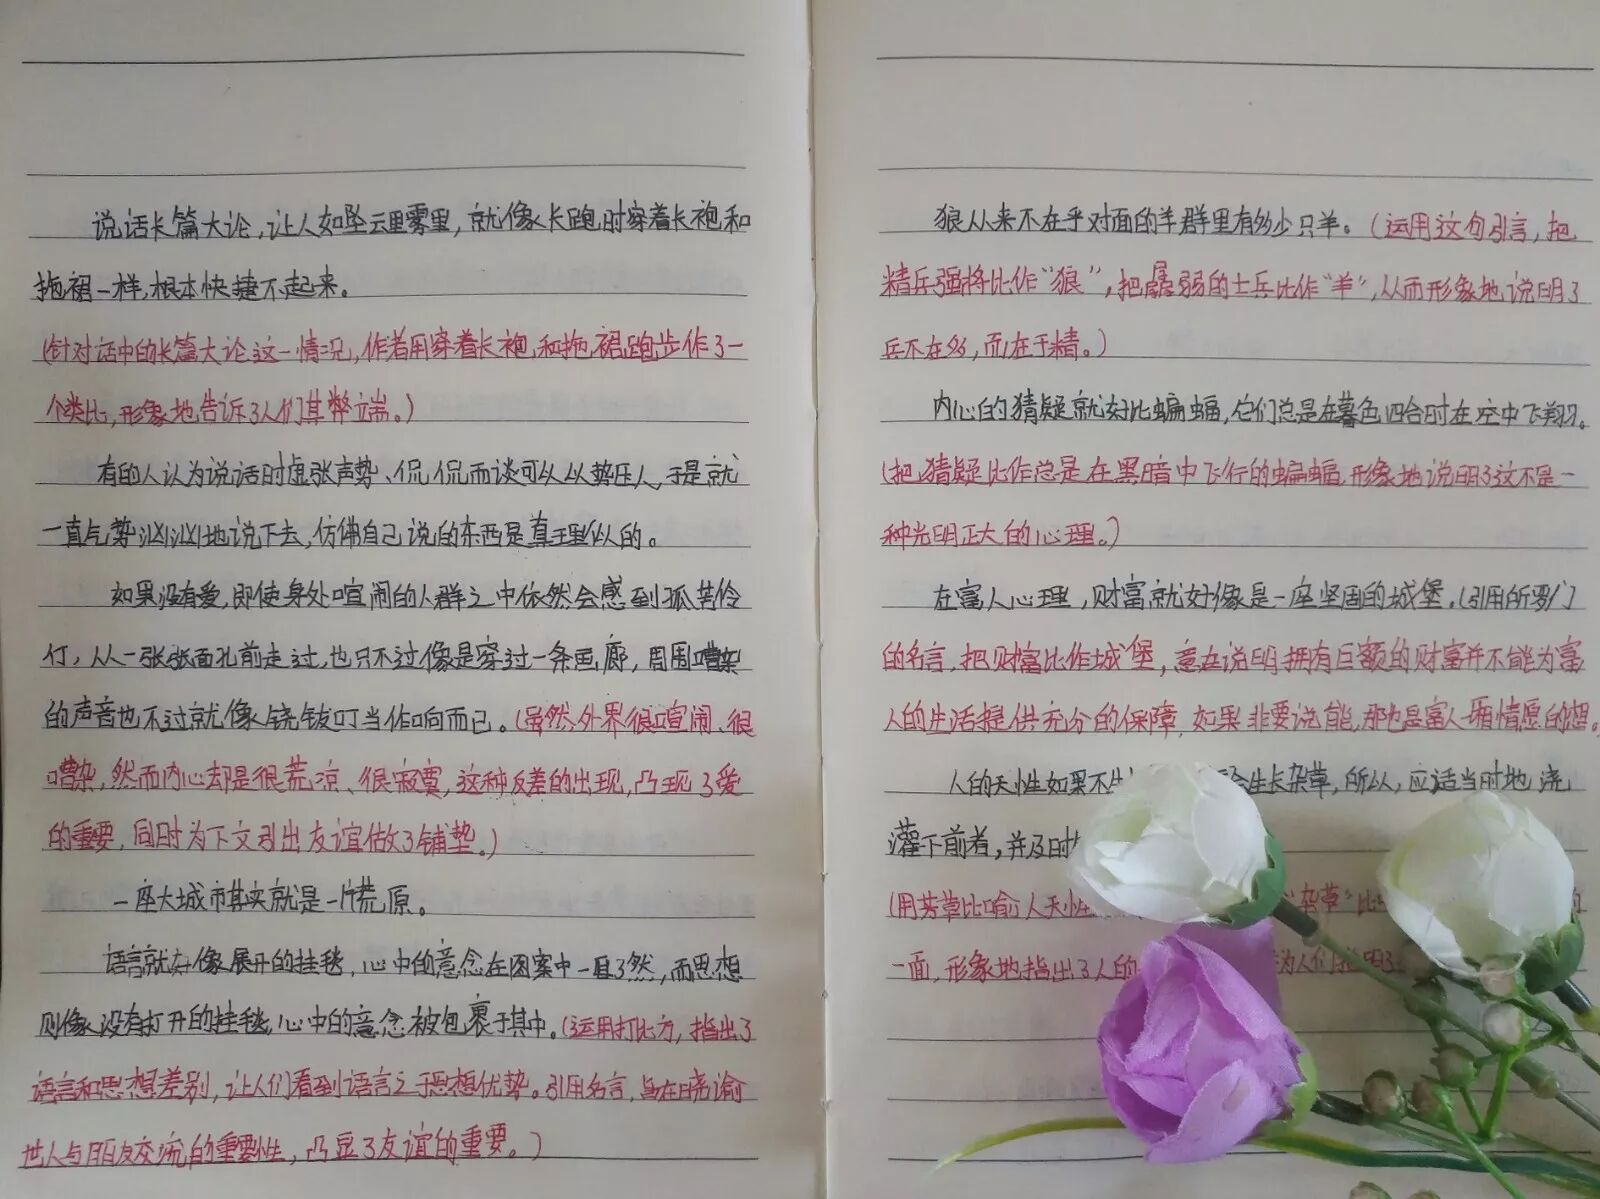 说话长篇大论,让人如坠云里雾里,就像长跑时穿着长袍和
拖裙一样,根本快捷不起来。
(针对话中的长篇大论这一情况,作者用穿着长袍和拖裙跑步作了一
个类比,形象地告诉了人们其弊端。)
有的人认为说话时虚张声势、侃侃而谈可以以势压人,于是就
一直气势汹汹地说下去,仿佛自己说的东西是真理似的。
如果没有爱,即使身处喧闹的人群之中依然会感到孤苦伶
仃,从一张张面孔前走过,也只不过像是穿过一条画廊,周围嘈杂
的声音也不过就像铙钹叮当作响而已。(虽然外界很喧闹、很
嘈杂,然而内心却是很荒凉、很寂寞,这种反差的出现,凸现了爱
的重要,同时为下文引出友谊做了铺垫。)
一座大城市其实就是一片荒原。
语言就好像展开的挂毯,心中的意念在图案中一目了然,而思想
则像没有打开的挂毯,心中的意念被包裹于其中。(运用打比方,指出了
语言和思想差别,让人们看到语言之于思想优势。引用名言,旨在晓谕
世人与朋友交流的重要性,凸显了友谊的重要。)
狼从来不在乎对面的羊群里有多少只羊。(运用这句引言,把
精兵强将比作“狼”,把孱弱的士兵比作“羊”,从而形象地说明了
兵不在多,而在于精。)
内心的猜疑就好比蝙蝠,它们总是在暮色四合时在空中飞翔。
(把猜疑比作总是在黑暗中飞行的蝙蝠,形象地说明了这不是一
种光明正大的心理。)
在富人心理,财富就好像是一座坚固的城堡。(引用所罗门
的名言,把财富比作城堡,意在说明拥有巨额的财富并不能为富
人的生活提供充分的保障,如果非要说能,那也是富人一厢情愿的想。
人的天性如果不生 会生长杂草,所以,应适当时地浇
灌下前者,并及时
(用芳草比喻人天性 “杂草”比
一面,形象地指出了人的 为人们指明了